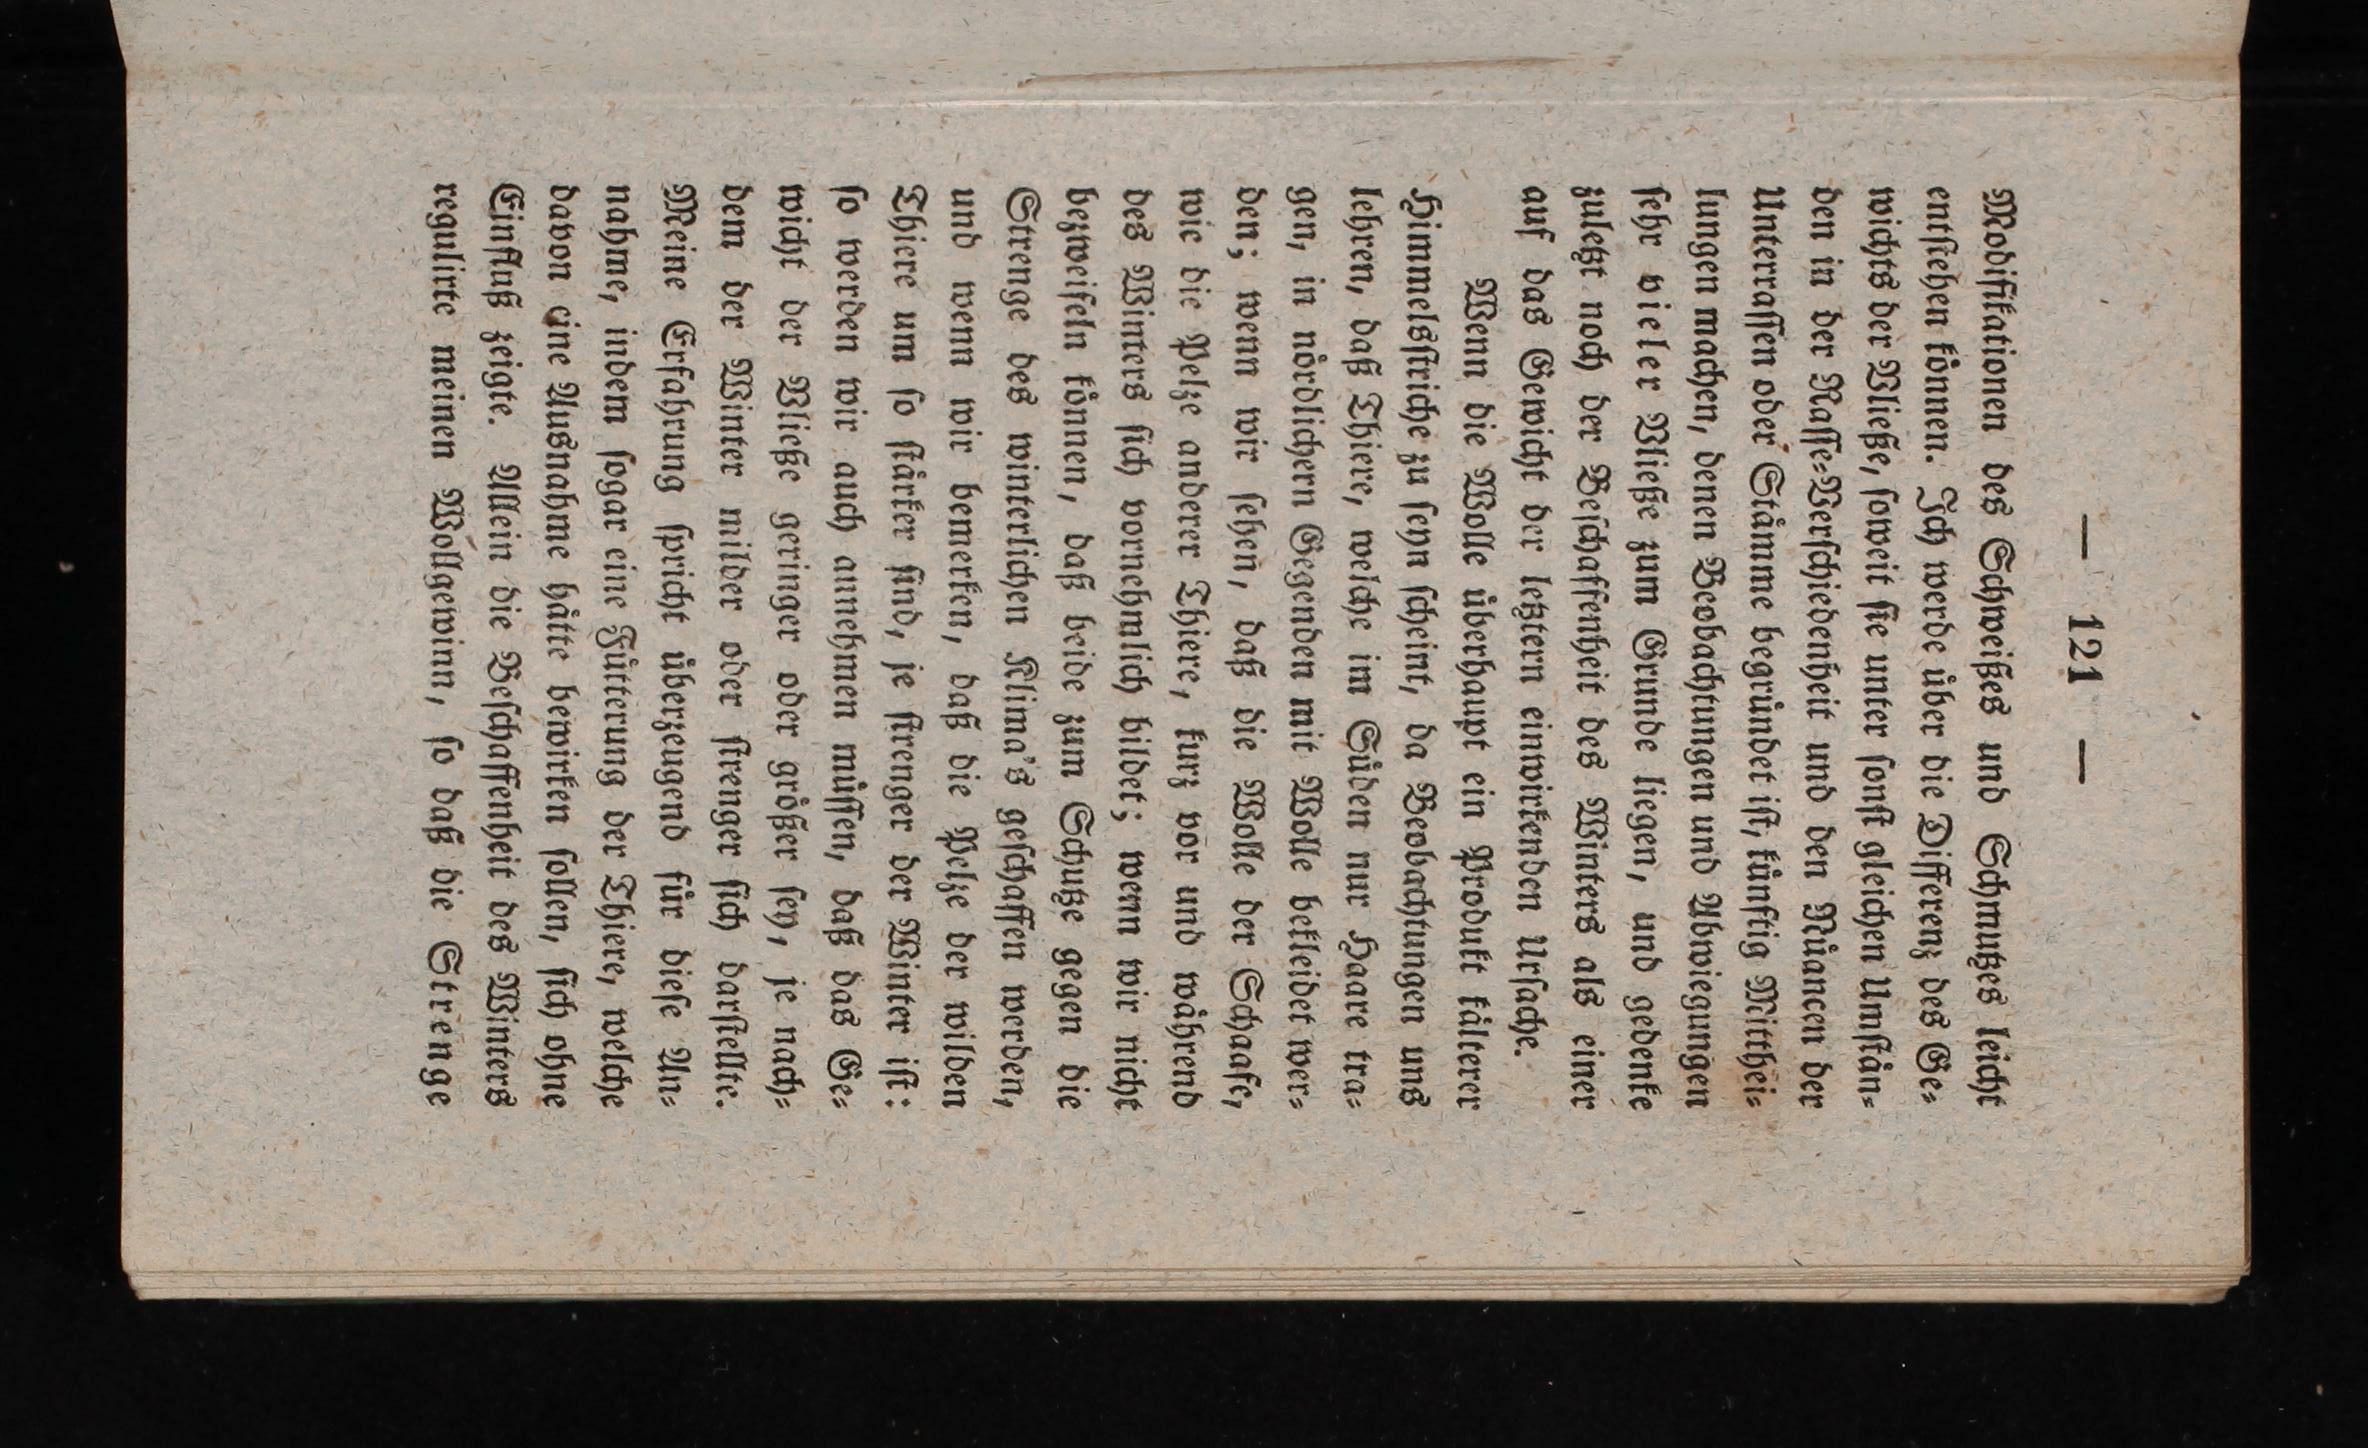 — 121 —
Modifikationen des Schweißes und Schmutzes leicht
entstehen können. Ich werde über die Differenz des Ge-
wichts der Vließe, soweit sie unter sonst gleichen Umstän-
den in der Rasse-Verschiedenheit und den Nüancen der
Unterrassen oder Stämme begründet ist, künftig Mitthei-
lungen machen, denen Beobachtungen und Abwiegungen
sehr vieler Vließe zum Grunde liegen, und gedenke
zuletzt noch der Beschaffenheit des Winters als einer
auf das Gewicht der letztern einwirkenden Ursache.
Wenn die Wolle überhaupt ein Produkt kälterer
Himmelsstriche zu seyn scheint, da Beobachtungen uns
lehren, daß Thiere, welche im Süden nur Haare tra-
gen, in nördlichern Gegenden mit Wolle bekleidet wer-
den; wenn wir sehen, daß die Wolle der Schaafe,
wie die Pelze anderer Thiere, kurz vor und während
des Winters sich vornehmlich bildet; wenn wir nicht
bezweifeln können, daß beide zum Schutze gegen die
Strenge des winterlichen Klima's geschaffen werden,
und wenn wir bemerken, daß die Pelze der wilden
Thiere um so stärker sind, je strenger der Winter ist:
so werden wir auch annehmen müssen, daß das Ge-
wicht der Vließe geringer oder größer sey, je nach-
dem der Winter milder oder strenger sich darstellte.
Meine Erfahrung spricht überzeugend für diese An-
nahme, indem sogar eine Fütterung der Thiere, welche
davon eine Ausnahme hätte bewirken sollen, sich ohne
Einfluß zeigte. Allein die Beschaffenheit des Winters
regulirte meinen Wollgewinn, so daß die Strenge